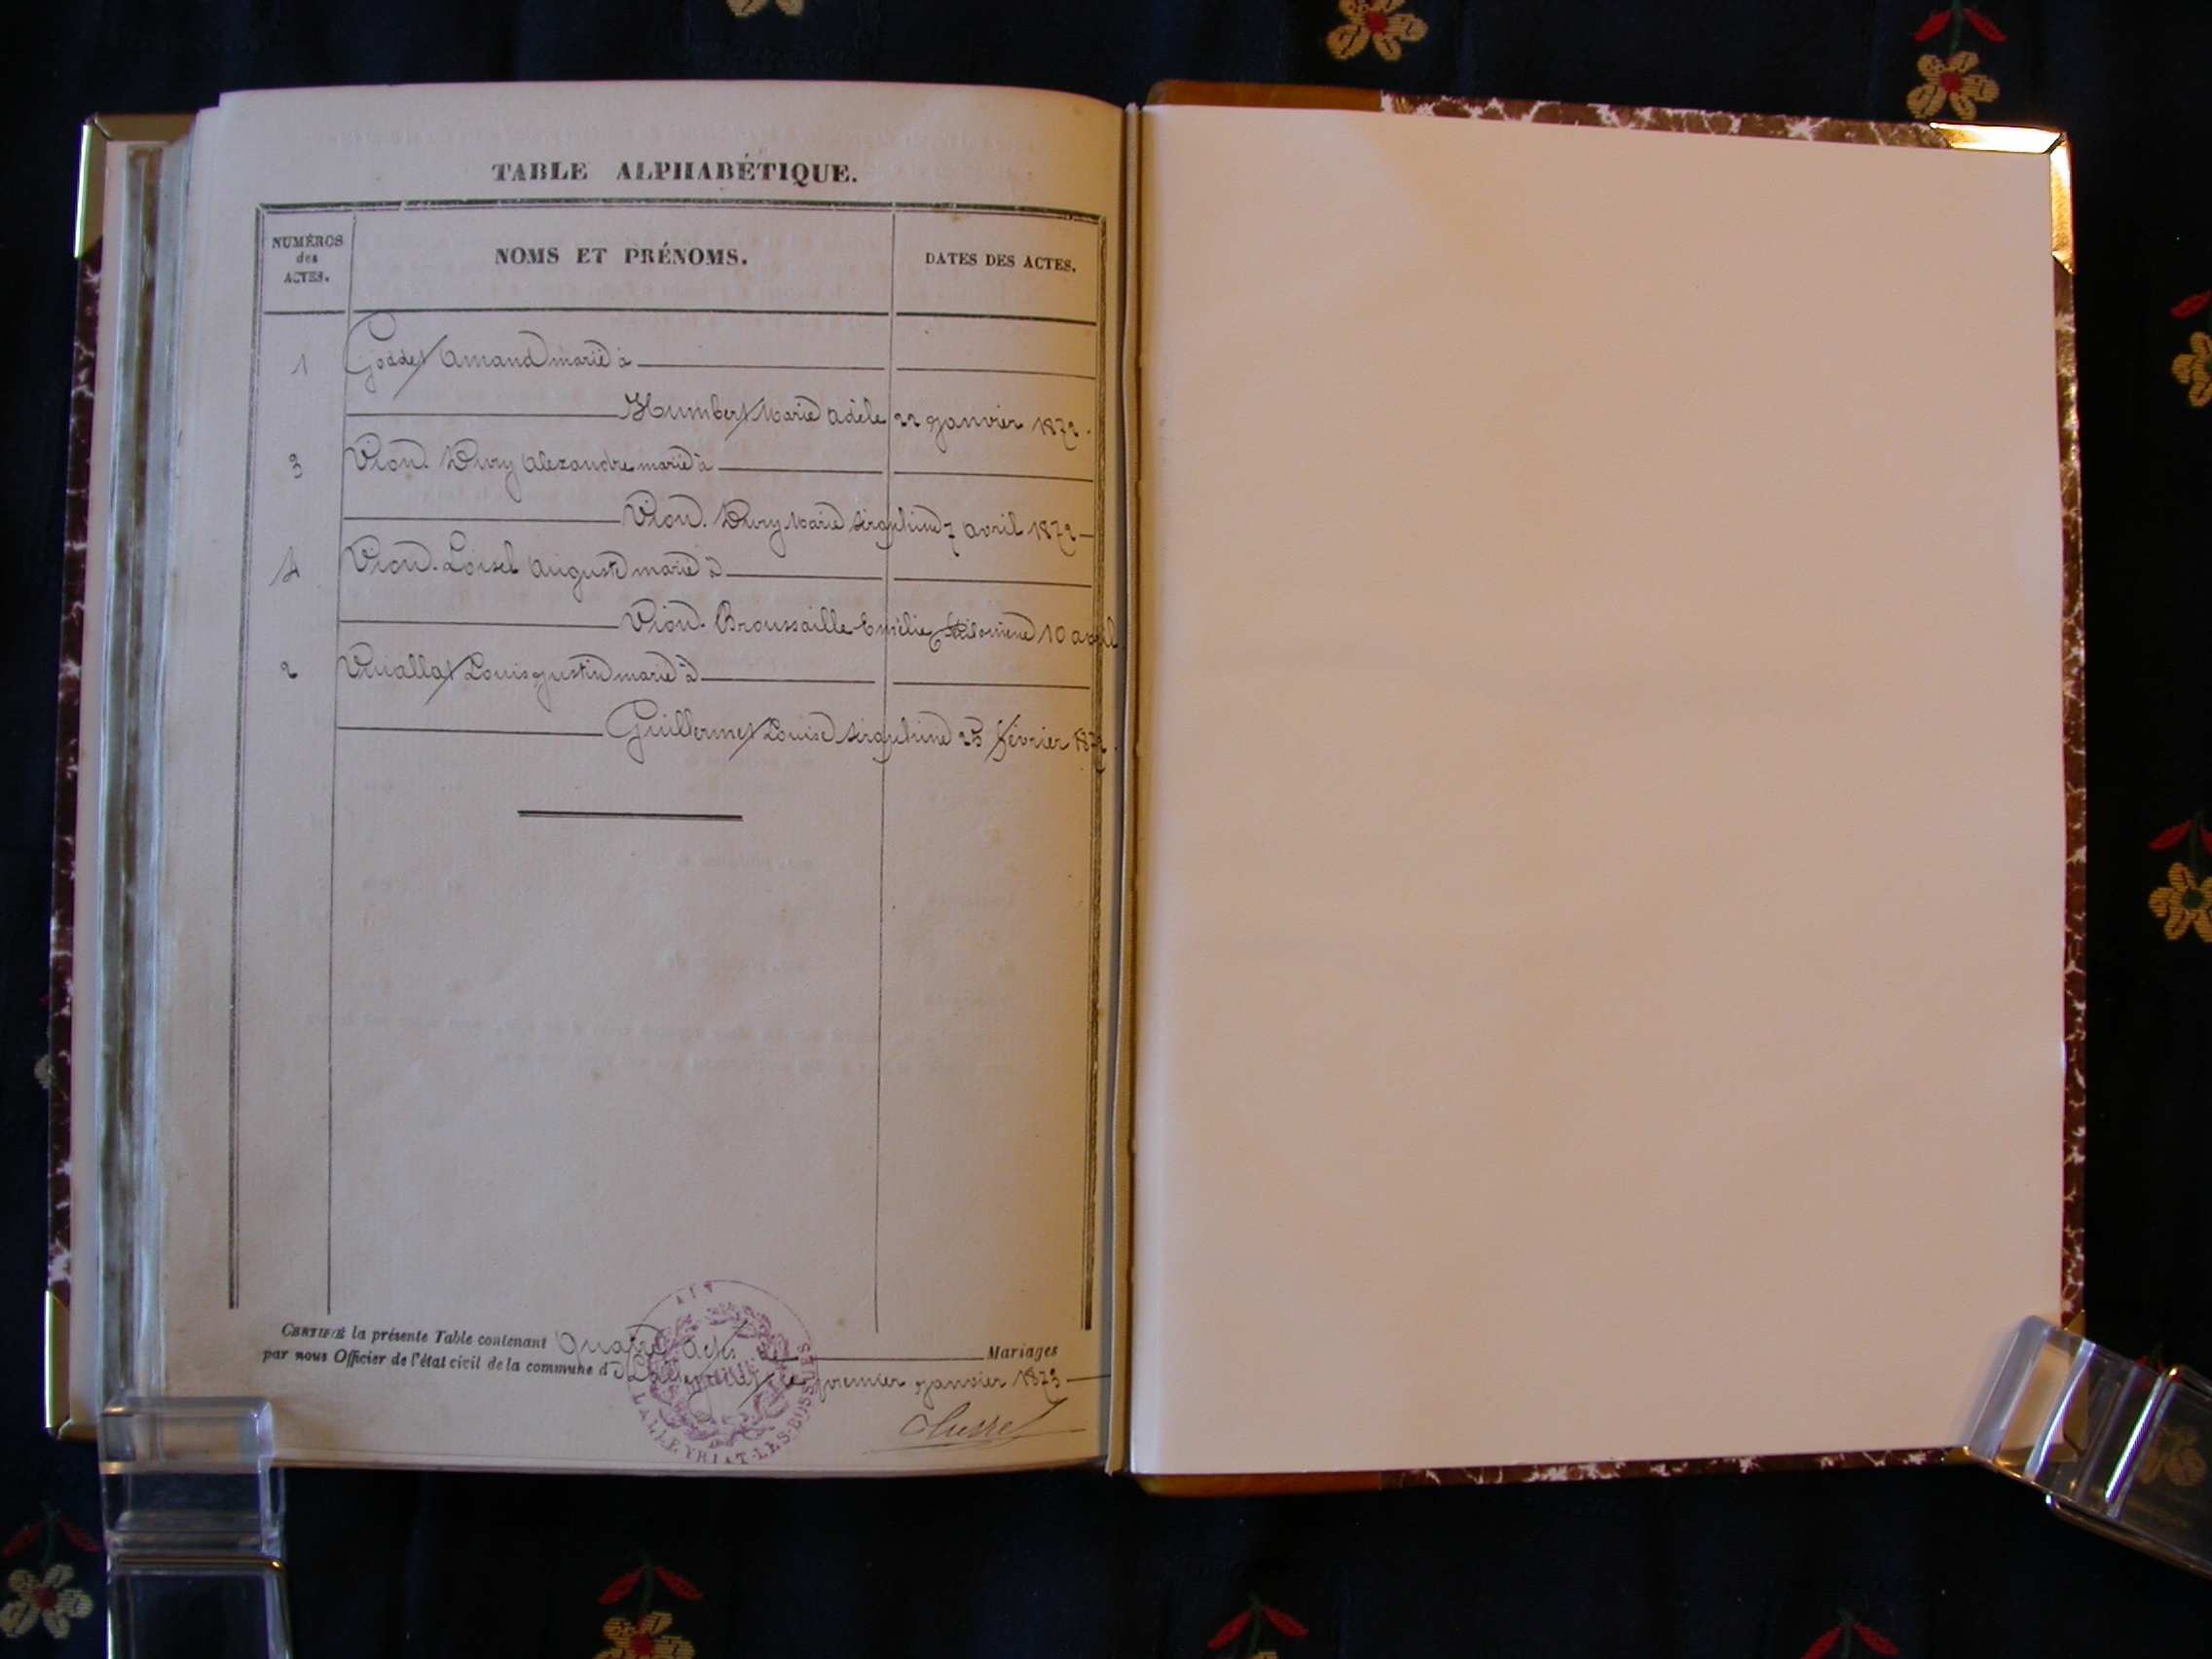 TABLE ALPHABÉTIQUE.
NUMÉROS des ACTES.
NOMS ET PRÉNOMS.
DATES DES ACTES.
1 Goddet Amand marié à
Humbert Marie Adèle 22 Janvier 1872.
3 Vion. Dury Alexandre marié à
Vion. Dury Marie Séraphine 7 avril 1872
4 Vion. Loisel Auguste marié à
Vion. Broussaille Emélie Philomène 10 avril
2 Vuaillat Louis Justin marié à
Guillermet Louise Séraphine 25 février 1872.
CERTIFIÉ la présente Table contenant Quatre actes de Mariages
par nous Officier de l'état civil de la commune de Lalleyriat le premier Janvier 1873
AIN
LALLEYRIAT-LES-BOSSUES